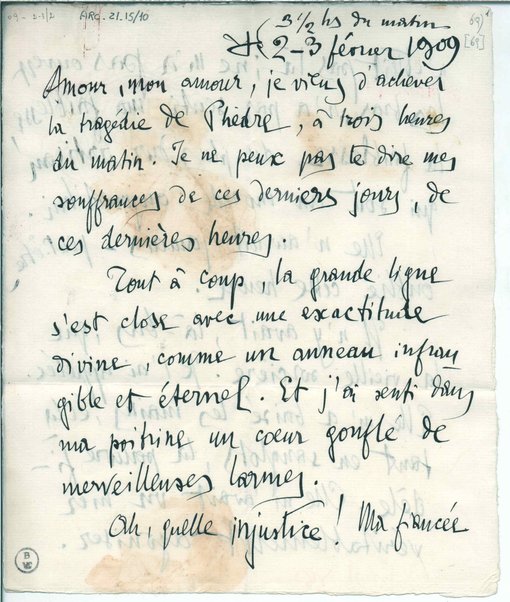 09 - 2-3/2
ARQ. 21.15/10
3 1/2 hs du matin
69)
[69]
2-3 février 1909
Amour, mon amour, je viens d'achever
la tragédie de Phèdre, à trois heures
du matin. Je ne peux pas te dire mes
souffrances de ces derniers jours, de
ces dernières heures
Tout à coup, la grande ligne
s'est close avec une exactitude
divine, comme un anneau infran
gible et éternel. Et j'ai senti dans
ma poitrine un cœur gonflé de
merveilleuses larmes.
Oh, quelle injustice ! Ma fiancée